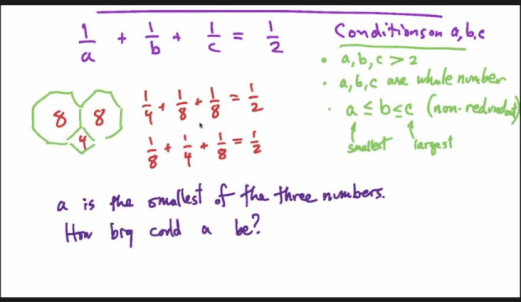 1/a + 1/b + 1/c = 1/2
Conditions on a, b, c
• a, b, c > 2
• a, b, c are whole number
• a ≤ b ≤ c (non-redundant)
smallest largest
8 8
4
1/4 + 1/8 + 1/8 = 1/2
1/8 + 1/4 + 1/8 = 1/2
a is the smallest of the three numbers.
How big could a be?